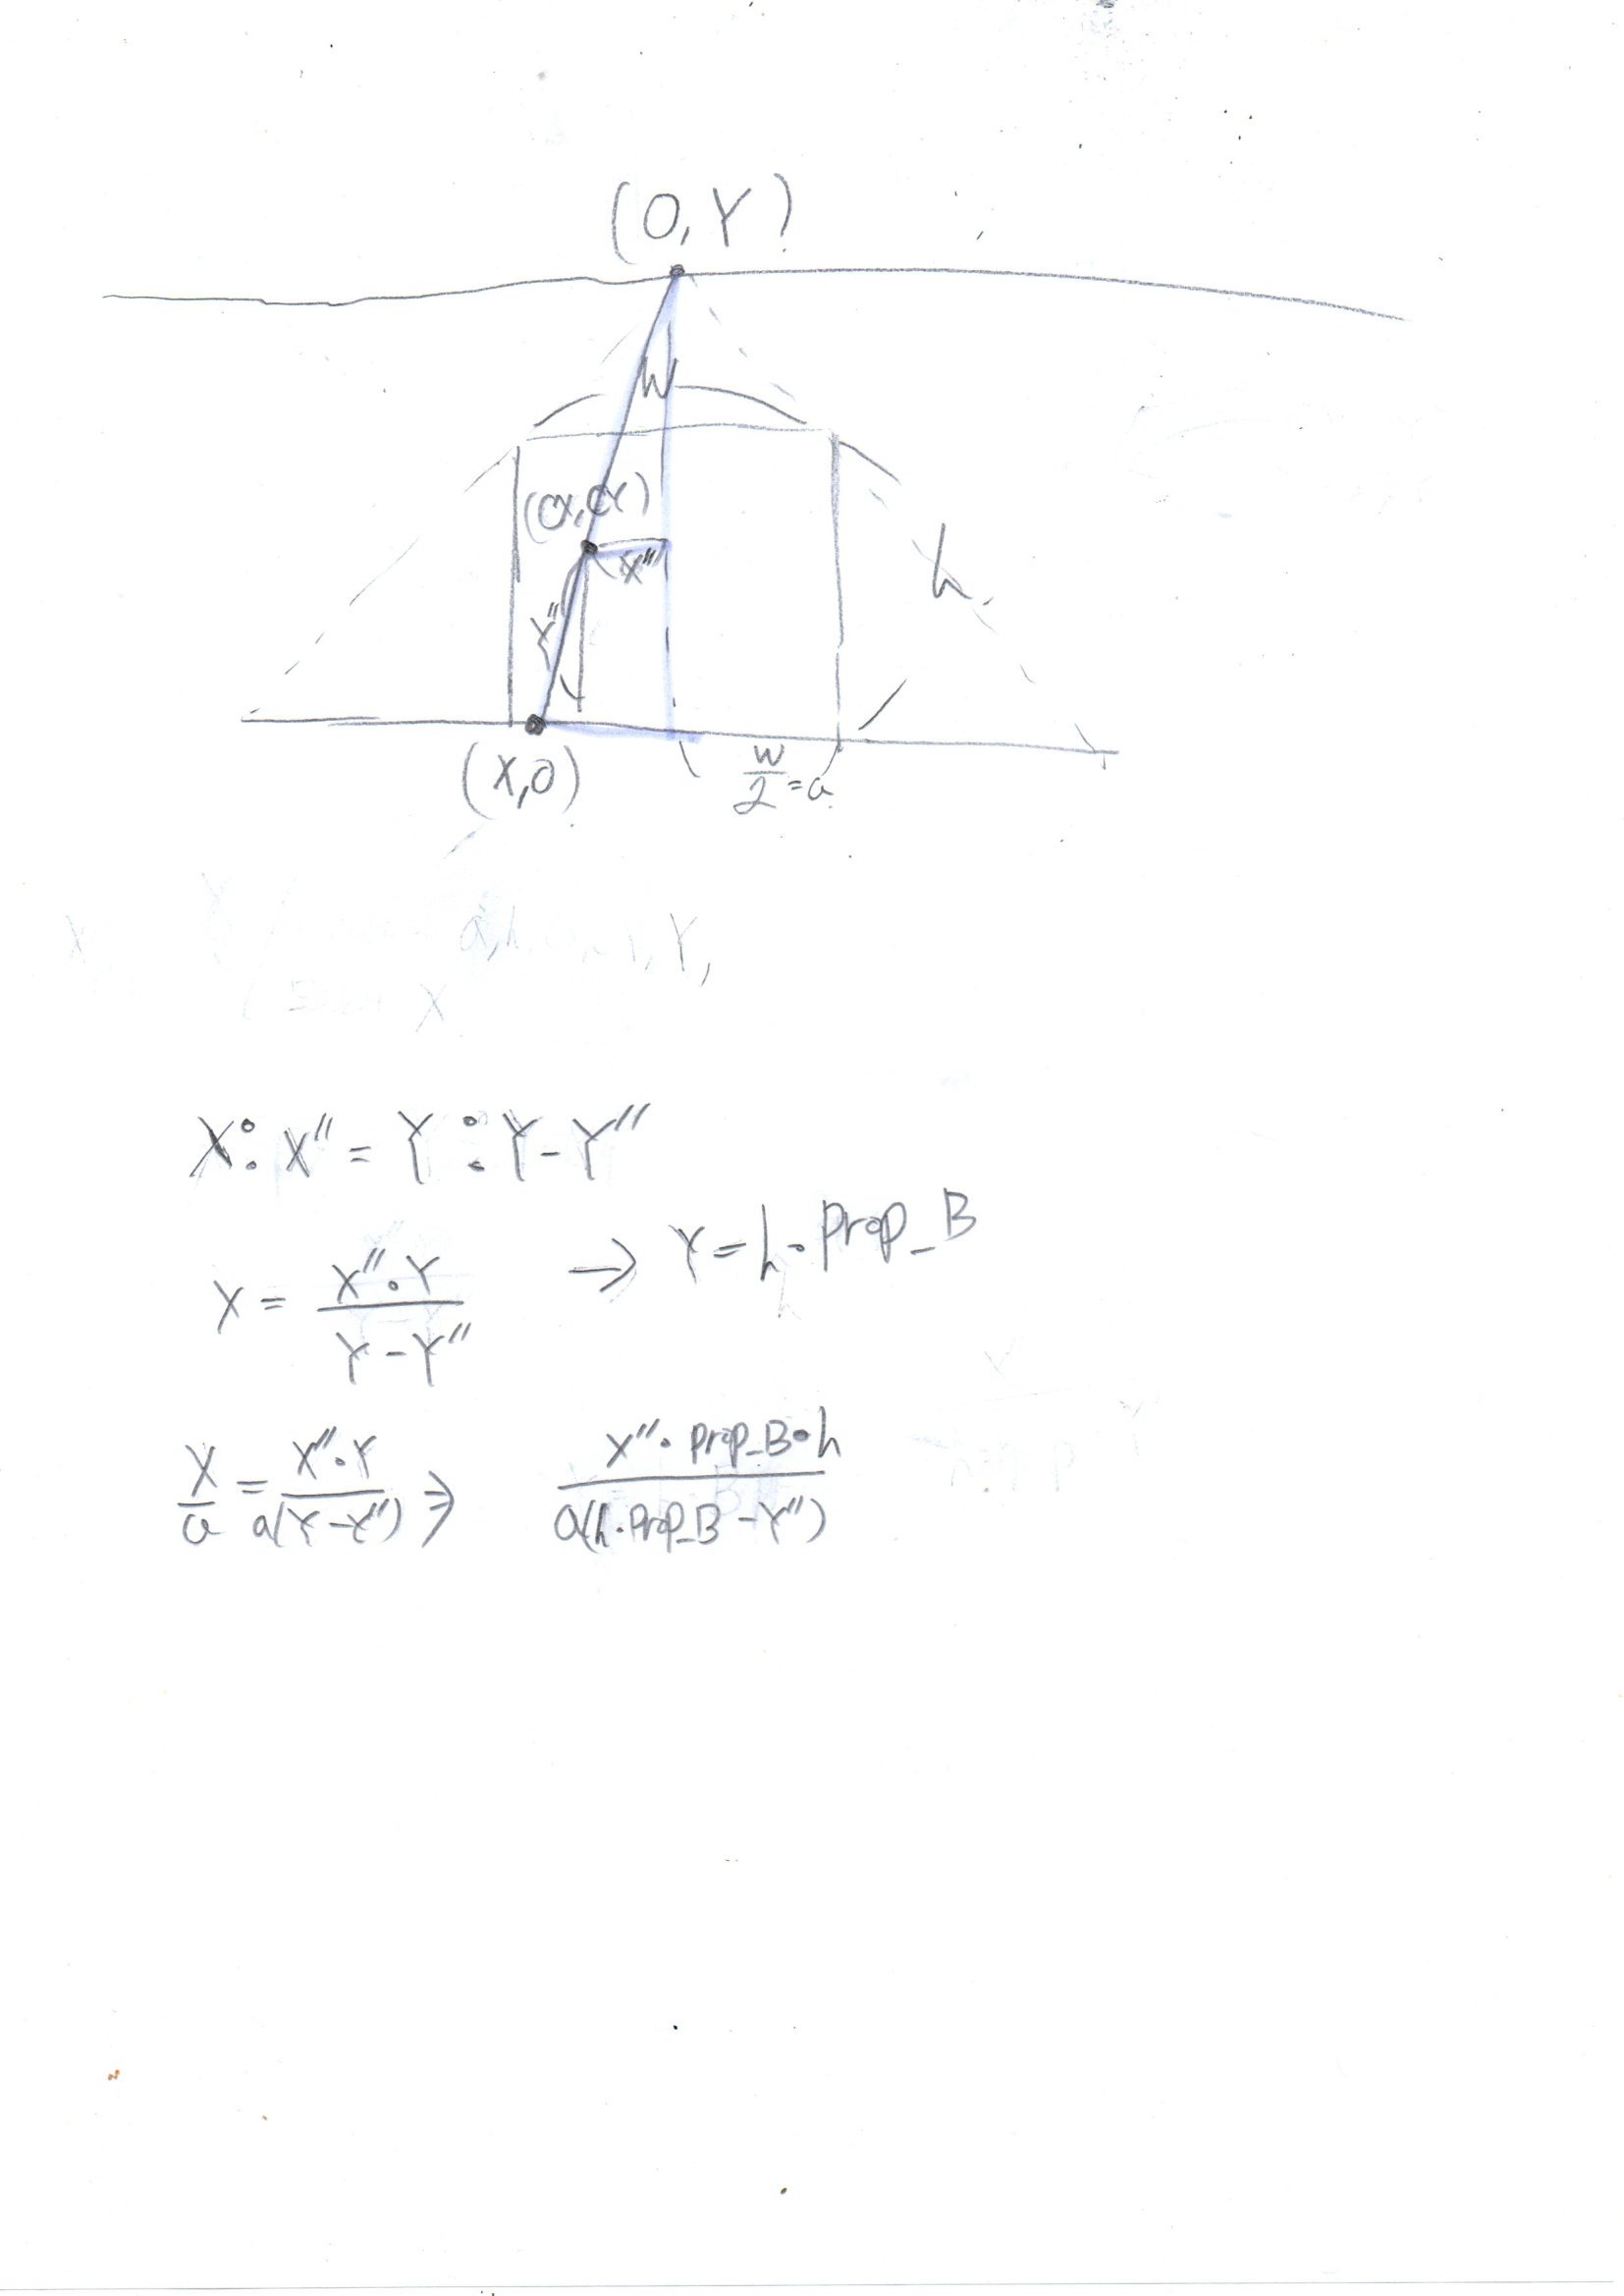 (0, Y)
W
(CX, CY)
X''
h
Y''
(X, 0)
w/2 = a
a, h, Y,
X
X : X'' = Y : Y - Y''
X = X''·Y / Y - Y'' → Y = h·Prop_B
X/a = X''·Y / a(Y - Y'') ⇒ X''·Prop_B·h / a(h·Prop_B - Y'')